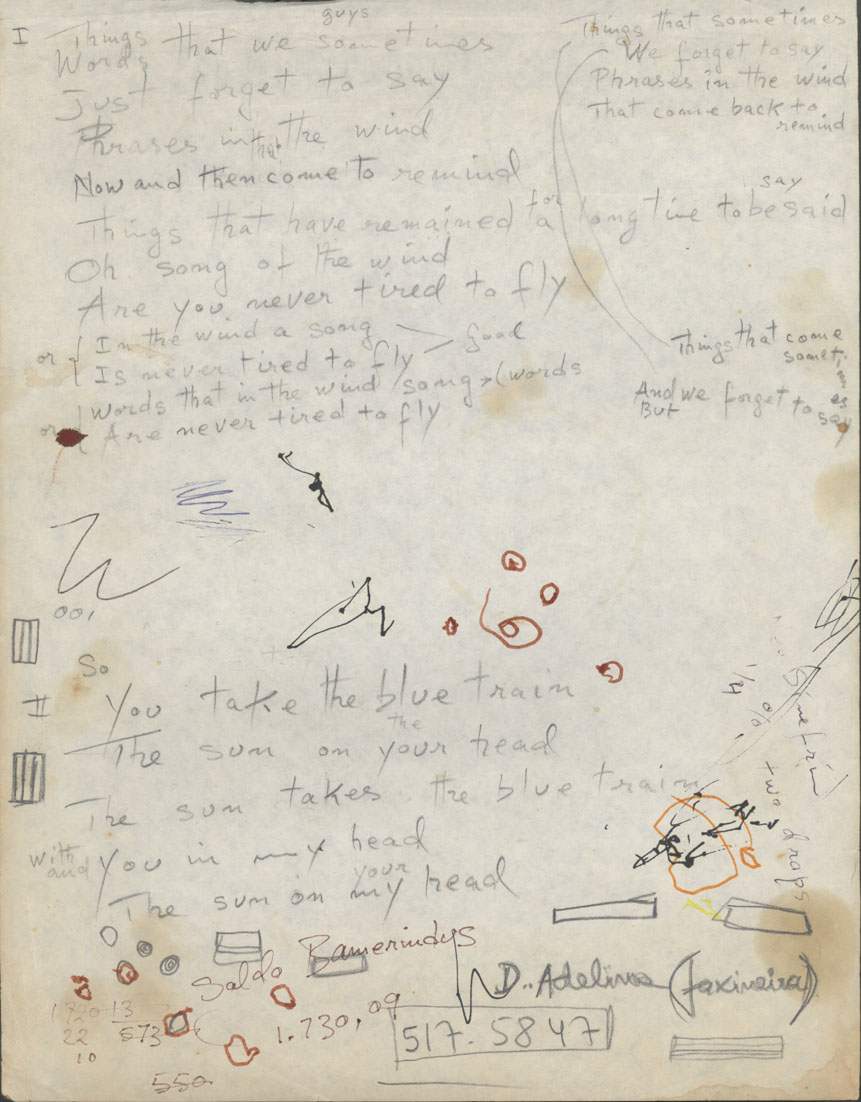 guys
I Things that we sometimes
Words
Just forget to say
Phrases in the wind
that
Now and then come to remind
say
Things that have remained for a long time to be said
Oh song of the wind
Are you never tired to fly
or { In the wind a song good
Is never tired to fly
or { Words that in the wind song > (words
Are never tired to fly
Things that sometimes
We forget to say
Phrases in the wind
That come back to
remind
Things that come
sometimes
And we forget to say
But
001
So
II You take the blue train
the
The sun on your head
The sun takes the blue train
with
and you in my head
your
The sun on my head
1/4 %
two drops
Saldo Bamerindus
1.730,09
D. Adelina (faxineira)
517.5847
13
22 573
10
550